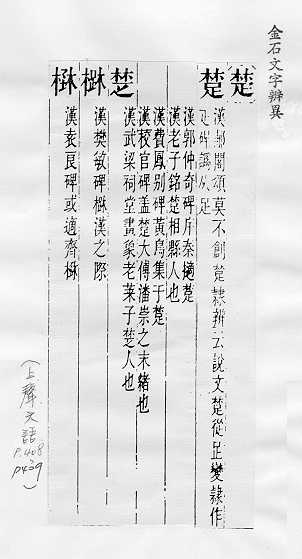 金石文字辨異
楚 漢郙閣頌莫不創楚隸辨云說文楚從疋變隸作
楚 疋碑譌从足
漢郭仲奇碑斤奏摘楚
漢老子銘楚相縣人也
漢費鳳别碑黃鳥集于楚
漢校官碑盖楚大傅潘崇之末緒也
楚 漢武梁祠堂畫象老萊子楚人也
楙 漢樊敏碑楙漢之際
楙 漢袁良碑或適齊楙
(上聲文語
P.408
P409)